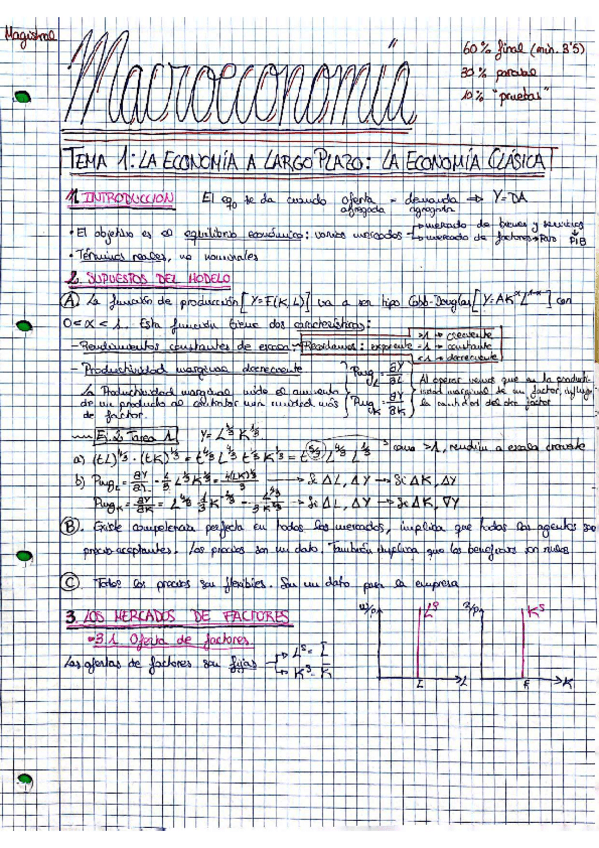 Magistral
Macroeconomía
60% final (min. 3'5)
30% parcial
10% "pruebas"
TEMA 1: LA ECONOMÍA A LARGO PLAZO: LA ECONOMÍA CLÁSICA
1. INTRODUCCION El eqº te da cuando oferta agregada = demanda agregada → Y=DA
· El objetivo es el equilibrio económico: varios mercados → mercado de bienes y servicios
→ mercado de factores → PIB
· Términos reales, no nominales
2. SUPUESTOS DEL MODELO
A) La función de producción [Y=F(K,L)] va a ser tipo Cobb-Douglas [Y=AK^α L^1-α] con
0<α<1. Esta función tiene dos características:
- Rendimientos constantes de escala → Recordamos: exponente >1 → creciente
=1 → constante
<1 → decreciente
- Productividad marginal decreciente
La Productividad marginal mide el aumento
de un producto al contratar una unidad más
de factor.
Pmg L = ∂Y/∂L
Pmg K = ∂Y/∂K
Al operar vemos que en la producti-
vidad marginal de un factor, influye
la cantidad del otro factor
Ej. 2 Tarea 1 Y= L^4/3 K^1/3
a) (tL)^4/3 · (tK)^1/3 = t^4/3 L^4/3 t^1/3 K^1/3 = t^5/3 L^4/3 como >1, rendim a escala creciente
b) Pmg L = ∂Y/∂L = 4/3 L^1/3 K^1/3 = 4(LK)^1/3 / 3 → Si ΔL, ΔY → Si ΔK, ΔY
Pmg K = ∂Y/∂K = L^4/3 1/3 K^-2/3 → Si ΔL, ΔY → Si ΔK, ∇Y
B. Existe competencia perfecta en todos los mercados, implica que todos los agentes son
precio aceptantes. Los precios son un dato. También implica que los beneficios son nulos
C. Todos los precios son flexibles. Son un dato para la empresa
3. LOS MERCADOS DE FACTORES
3.1. Oferta de factores
Las ofertas de factores son fijas → L^S = L̄
→ K^S = K̄
w/p L^S L̄ L
K^S K̄ K